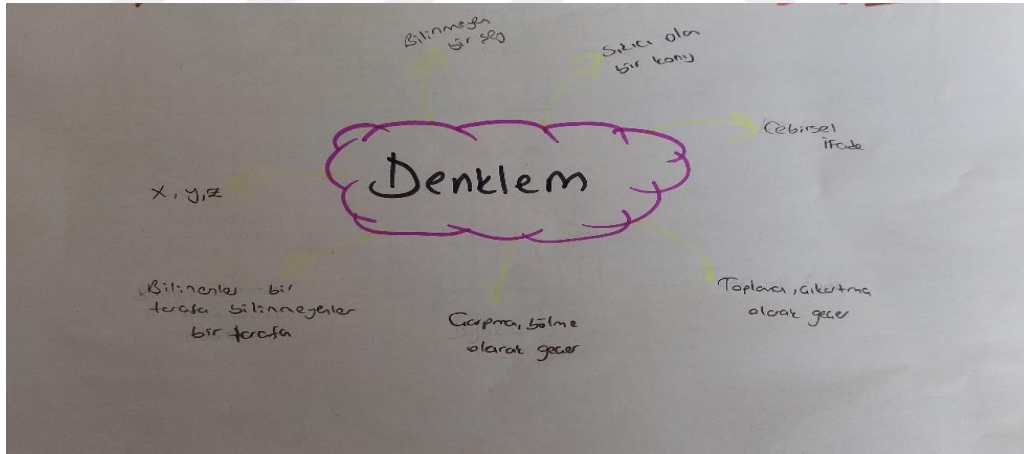 Bilinmeyen
bir şey
Sıkıcı olan
bir konu
Cebirsel
ifade
Denklem
x, y, z
Bilinenler bir
tarafa bilinmeyenler
bir tarafa
Çarpma, bölme
olarak geçer
Toplama, çıkartma
olarak geçer